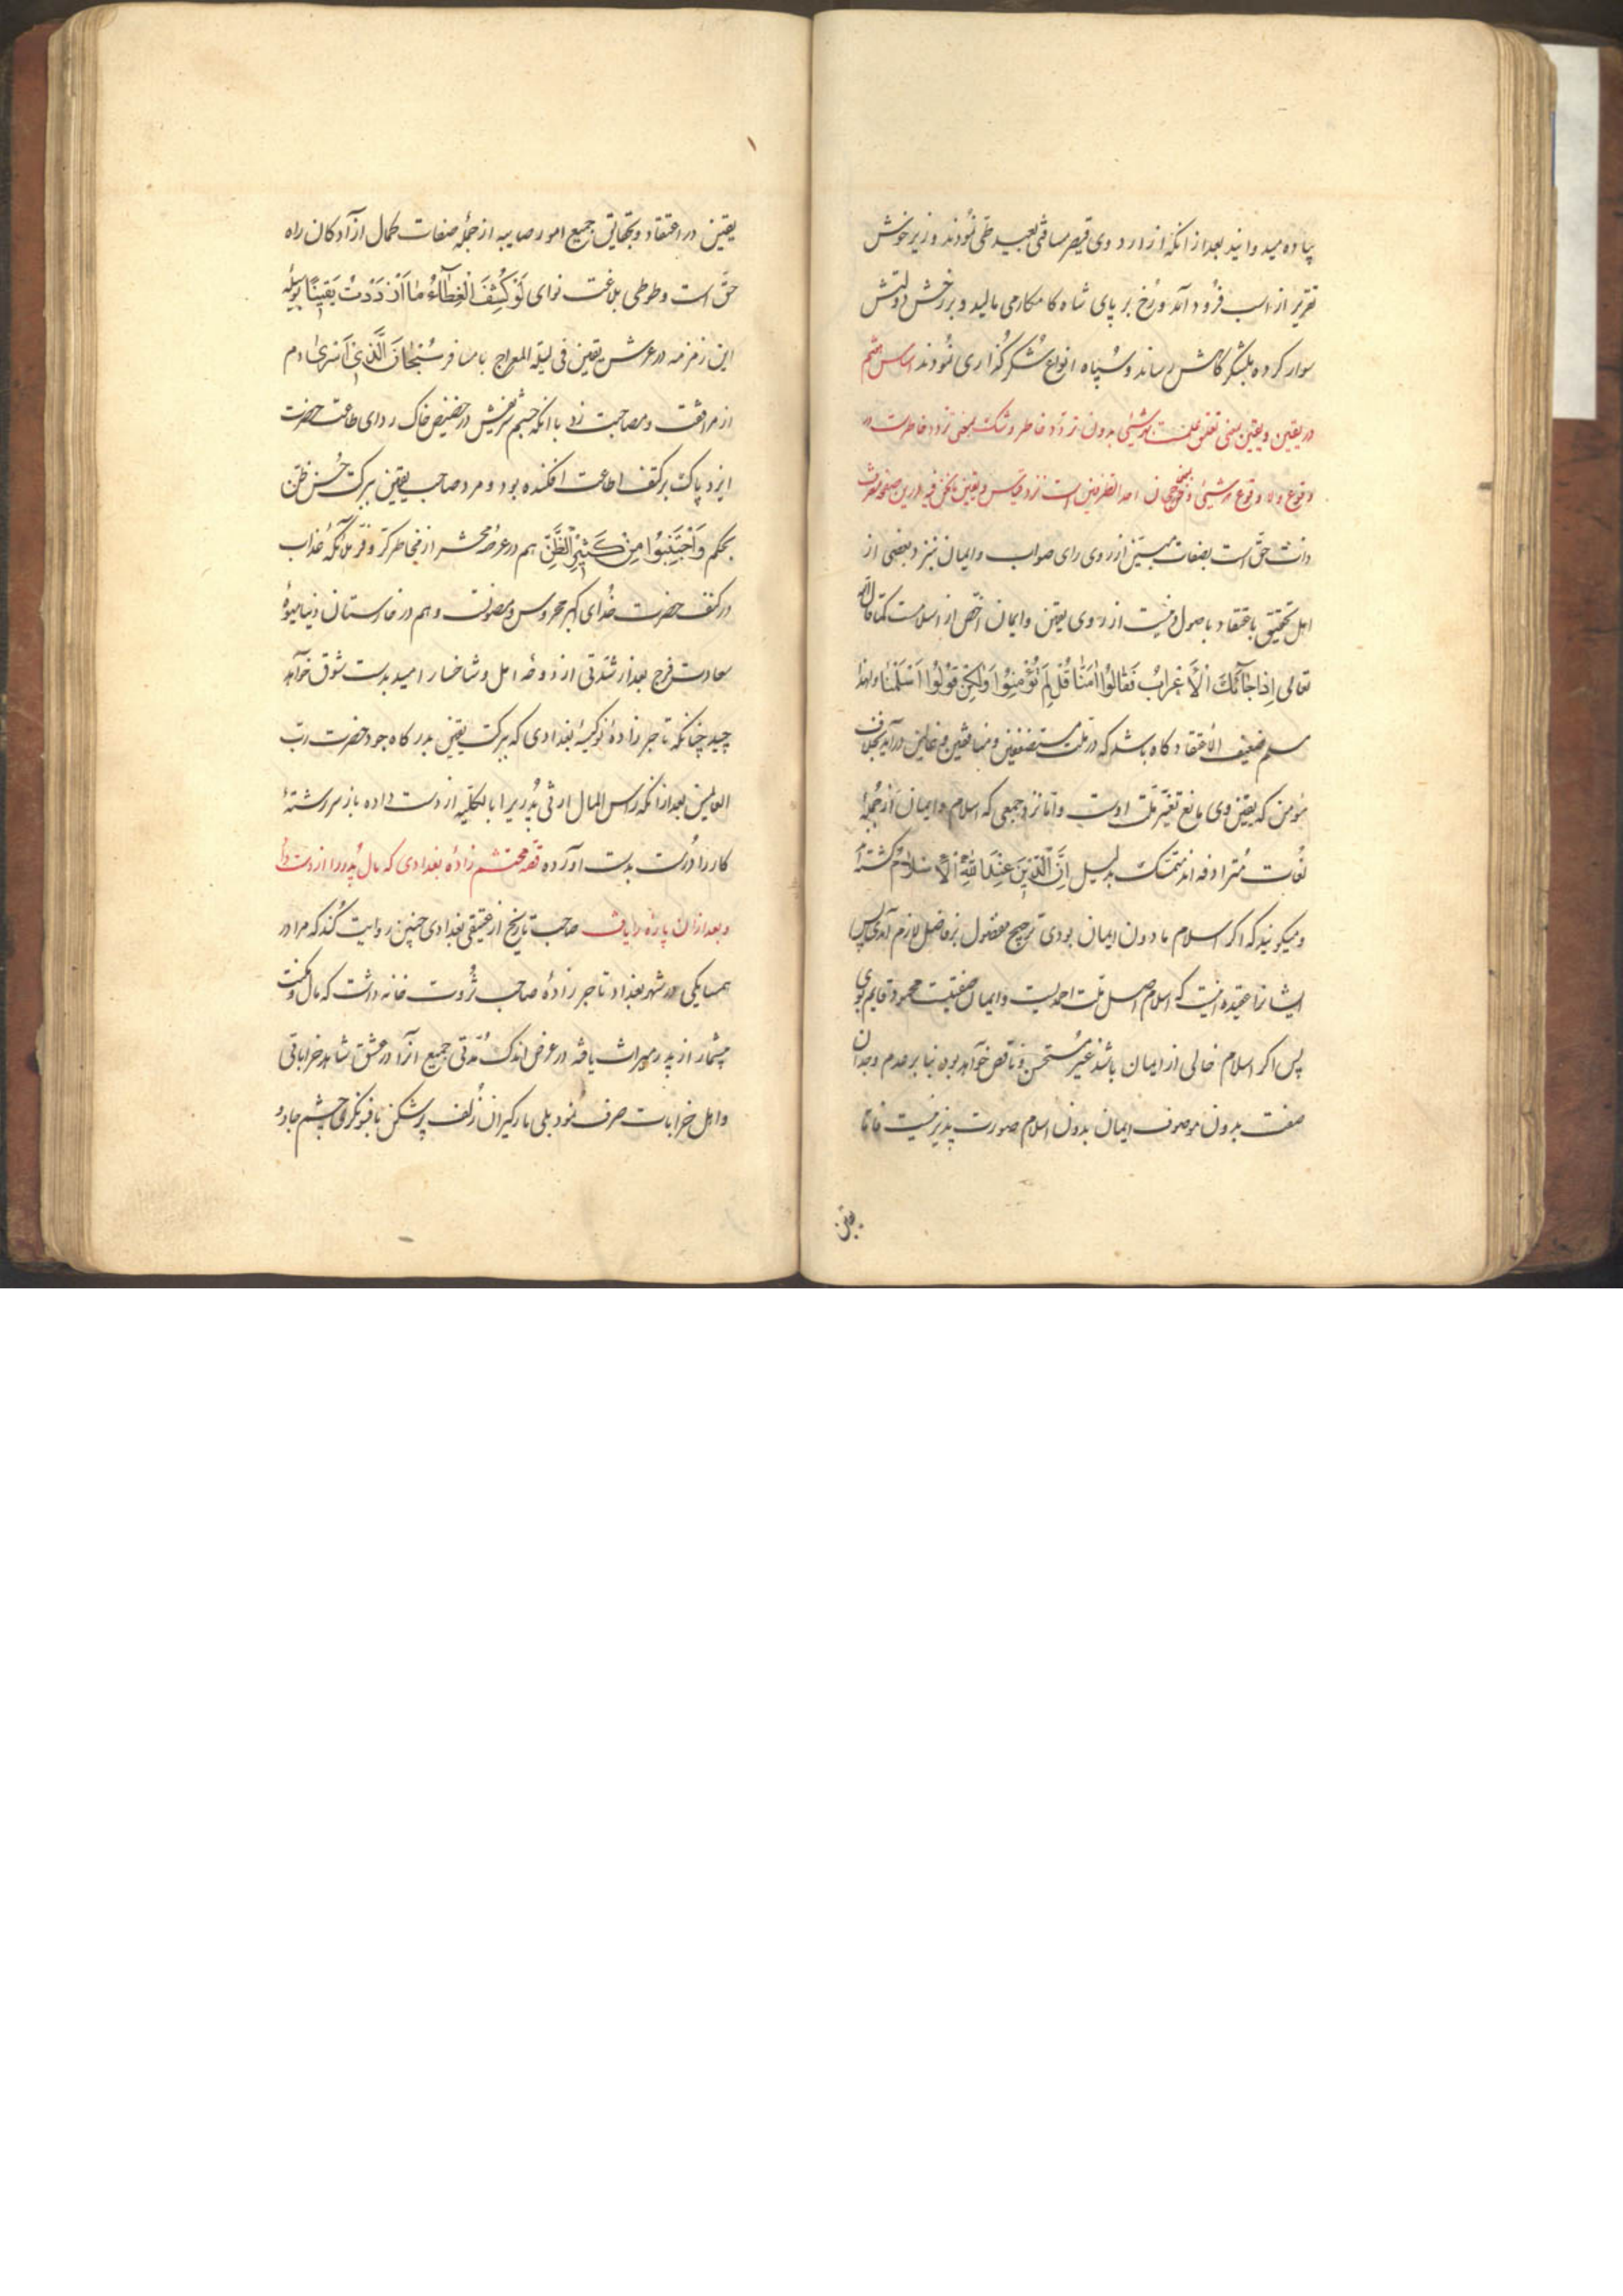 پیاده میدوانید بعد از انکه از اردوی قیصر مسافتی بعید طی نمودند وزیر خوش
تقریر از اسب فرود آمد و رخ بر پای شاه کامکار می مالید و بر رخش دولتش
سوار کرده بلشکرگاهش رساند و سپاه انواع شکرگذاری نمودند اساس هشتم
در یقین و یقین یعنی تعلق علمست بهرشیئی بدون تردد خاطر و شک یعنی تردد خاطرست در
وقوع ولا وقوع هرشیئی و احد الطرفین است نزد قیاس و یقین
دانستن حق است بصفات از روی رای صواب و ایمان نیز نزد بعضی از
اهل تحقیق باعتقاد باصول دینیت از روی یقین و ایمان اخص از اسلامست کما قال الله
تعالی إِذَا جَآئَكَ الْأَعْرَابُ فَقَالُوا اٰمَنَّا قُلْ لَمْ تُؤْمِنُوا وَلٰكِنْ قُولُوا أَسْلَمْنَا ولهذا
مسلم ضعیف الاعتقاد کاه باشد که در ملت مستضعفین و منافقین در آید بخلاف
مؤمن که یقین وی مانع تغیر ملت اوست و اما نزد جمعی که اسلام و ایمان از جمله
لغات مترادفه اند متمسک بدلیل إِنَّ الدِّينَ عِنْدَ اللهِ الْإِسْلَامُ کشته
و میکویند که اکر اسلام مادون ایمان بودی ترجیح مفضول بر فاضل لازم آمدی پس
ایشانرا عقیده اینست که اسلام اصل ملت احمدیست و ایمان صفتیست محمود قایم بوی
پس اکر اسلام خالی از ایمان باشد غیر مستحسن و ناقص خواهد بود بنا بر عدم وجدان
صفت بدون موصوف ایمان بدون اسلام صورت پذیر نیست فاما
یقین
یقین در اعتقاد و بجمیع امور صایبه از جمله صفات کمال از آدکان راه
حق است و طوطی بلاغت نوای لَوْ كُشِفَ الْغِطَآءُ مَا ازْدَدْتُ يَقِينًا بوسیله
این زمزمه در عرش یقین فی لیله المعراج با مسافر سُبْحَانَ الَّذِي أَسْرَى دم
از مرافقت و مصاحبت زد با انکه جسم شریفش در حضیض خاک ردای طاعت حضرت
ایزد پاک بر کتف اطاعت افکنده بود و مرد صاحب یقین ببرکت حسن ظن
بحکم وَاجْتَنِبُوا مِنْ كَثِيرِ الظَّنِّ هم در عرصه محشر از مخاطر کر و فر ملآئکه عذاب
در کنف حضرت خدای اکبر محروس و مصونست و هم در خارستان دنیا میوهٔ
سعادت فرج بعد از شدتی از دوحه امل و شاخسار امید بدست شوق خواهد
چید چنانکه تاجرزادهٔ نوکیسهٔ بغدادی که ببرکت یقین بدرکاه جود حضرت رب
العالمین بعد از انکه راس المال ارثی پدریرا بالکلیه از دست داده باز سر رشتهٔ
کار را درست بدست آورده قصه محتشم زادهٔ بغدادی که مال پدررا از دست داد
و بعد از ان پارهٔ را یافت صاحب تاریخ از عتیقی بغدادی چنین روایت کند که مرا در
همسایکی در شهر بغداد تاجر زادهٔ صاحب ثروت خانه داشت که مال و مکنت
بیشمار از پدر میراث یافته در عرض اندک مدتی جمیع انرا در عشق شاهد خراباتی
و اهل خرابات صرف نمود بلی مارکیران زلف پرشکن با فسونکری چشم جادو